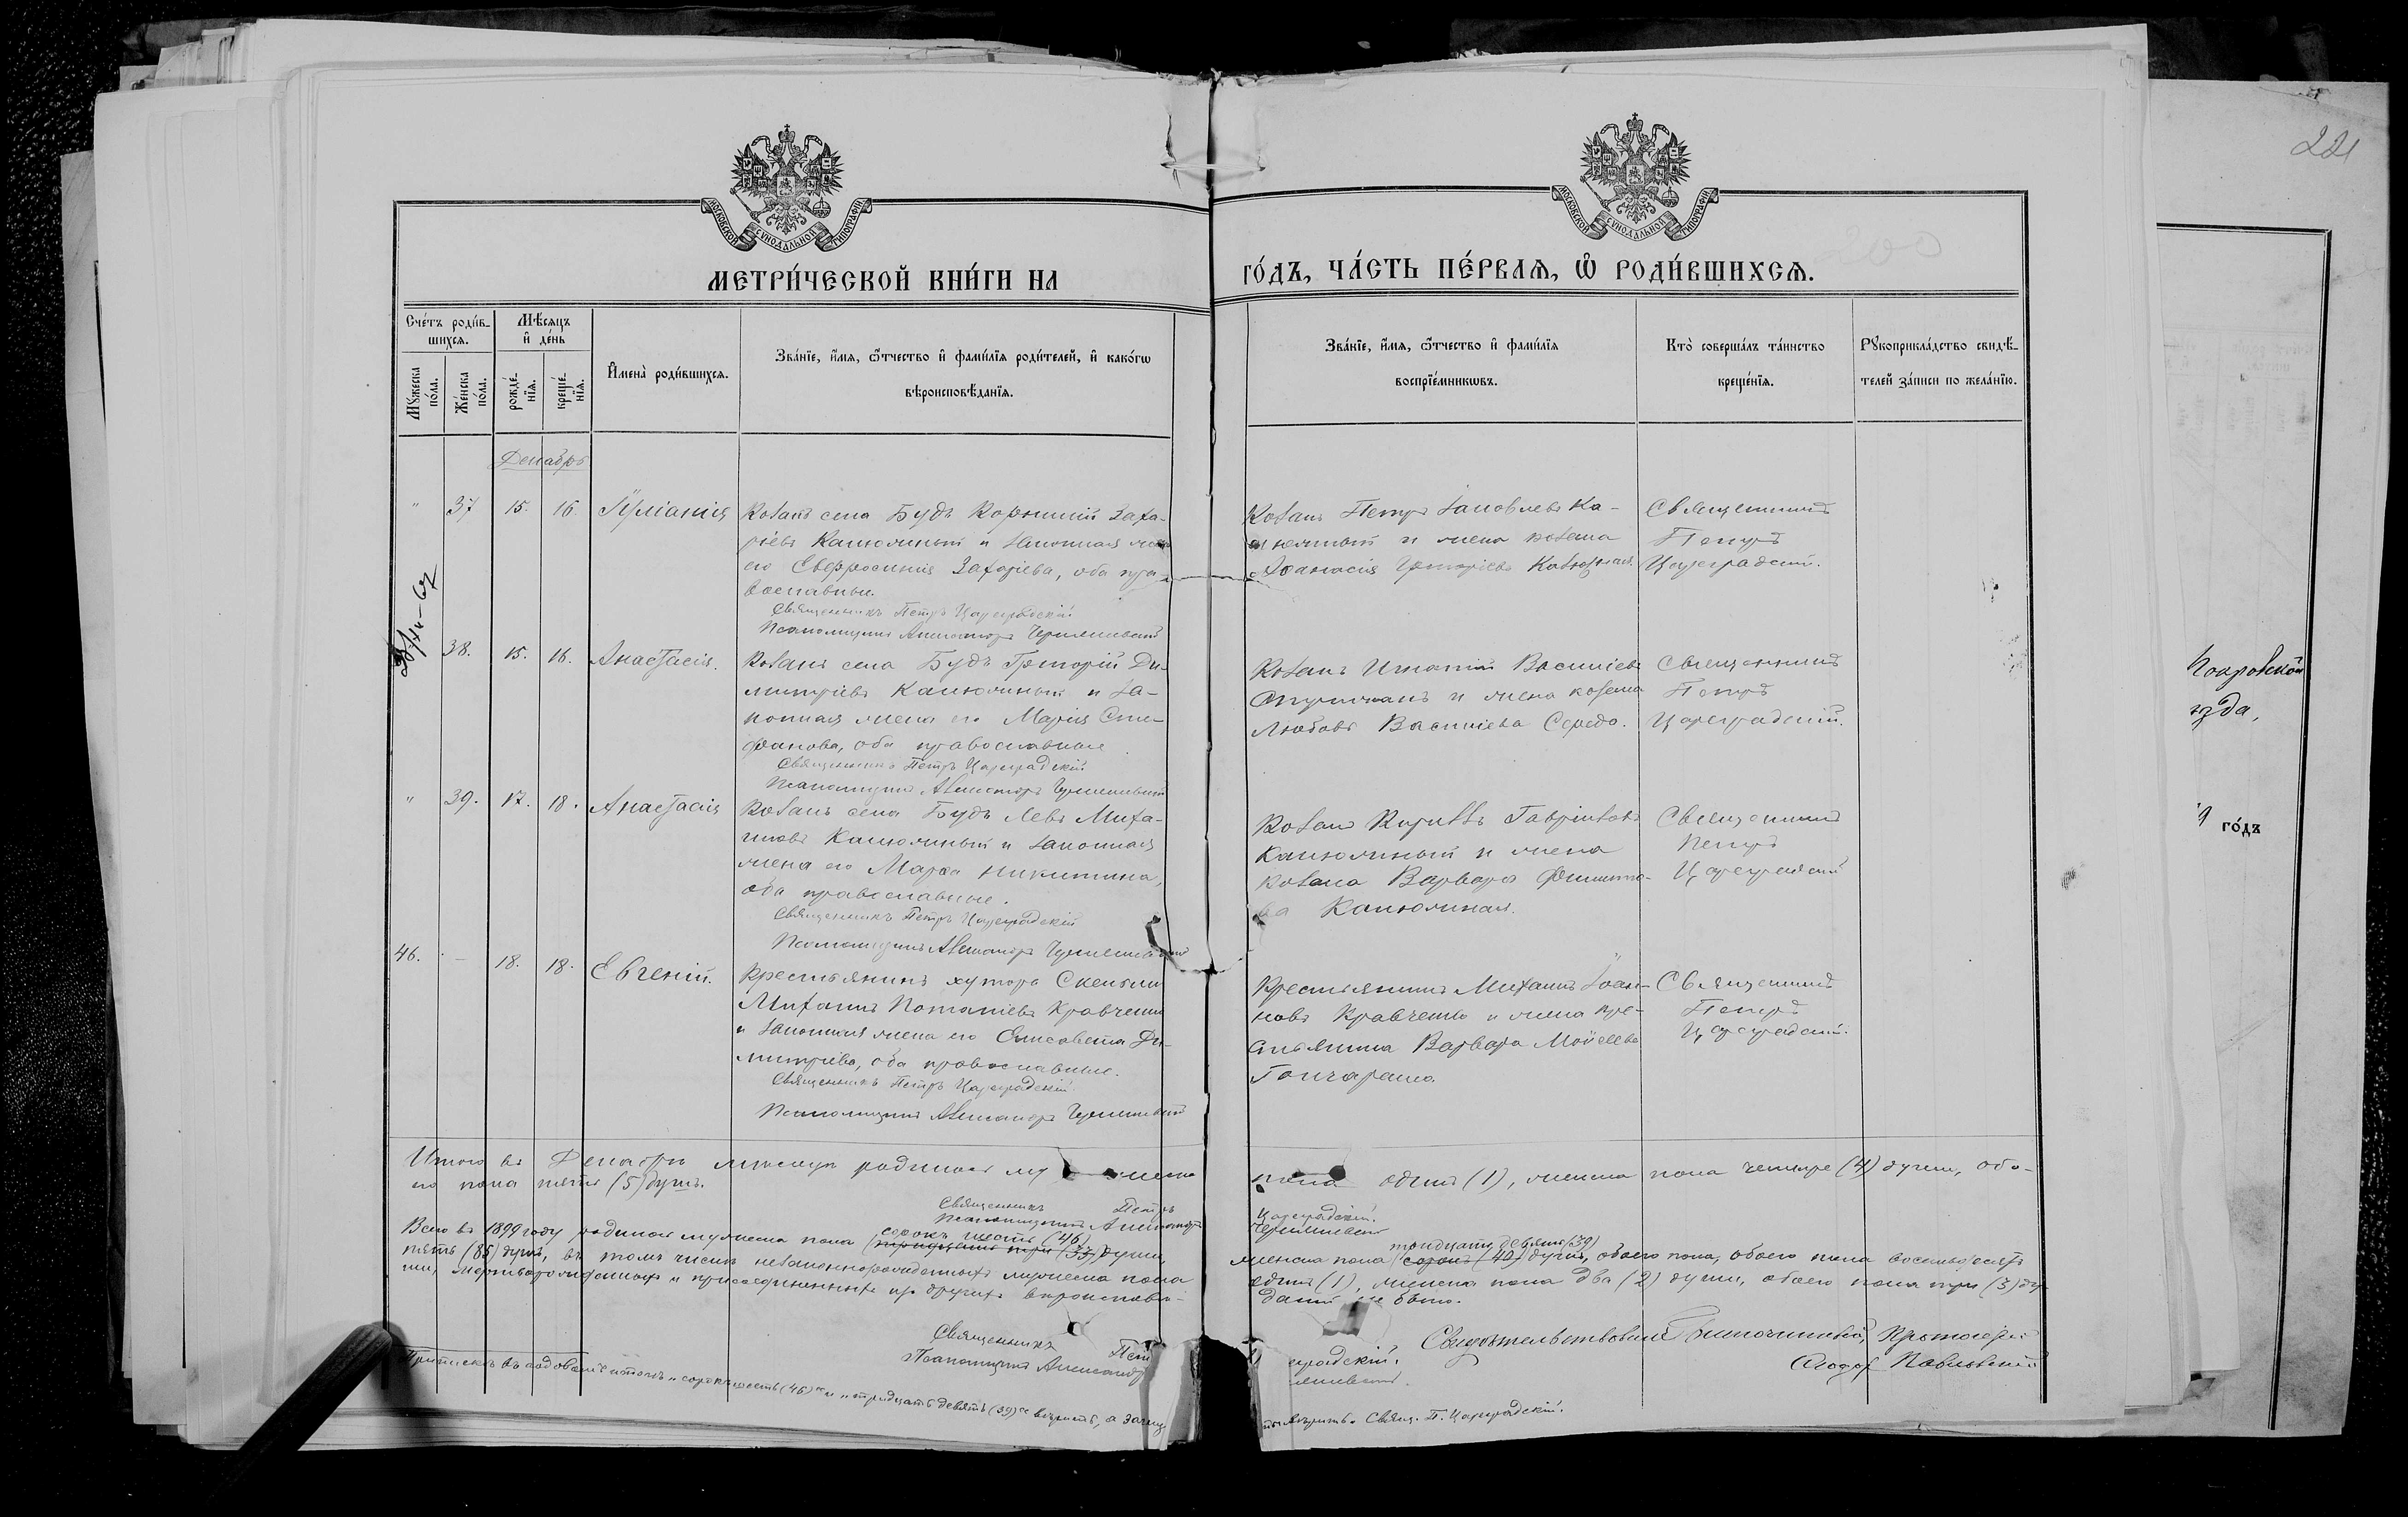 221
МОСКОВСКОЙ СУНОДАЛЬНОЙ ТИПОГРАФІИ
МОСКОВСКОЙ СУНОДАЛЬНОЙ ТИПОГРАФІИ
МЕТРИ́ЧЕСКОЙ КНИ́ГИ НА
ГО́ДЪ, ЧА́СТЬ ПЕ́РВАѦ, Ѡ҆ РОДИ́ВШИХСѦ.
Сче́тъ роди́в-
шихсѧ.
Мꙋ́жеска
по́ла.
Же́нска
по́ла.
Мѣ́сѧцъ
и҆ де́нь
рожде́-
нїѧ.
креще́-
нїѧ.
И҆мена̀ роди́вшихсѧ.
Зва́нїе, и҆́мѧ, ѻ҆́тчество и҆ фами́лїѧ роди́телей, и҆ како́гѡ
вѣроисповѣ́данїѧ.
Зва́нїе, и҆́мѧ, ѻ҆́тчество и҆ фами́лїѧ
воспрїе́мникѡвъ.
Кто̀ соверша́лъ та́инство
креще́нїѧ.
Рꙋкоприкла́дство свидѣ́-
телей за́писи по жела́нїю.
Декабрь
" 37 15. 16. Іуліанія
Козакъ села Будъ Корнилій Заха-
ріевъ Канюжный и законная жена
его Евфросинія Захаріева, оба пра-
вославные.
Священникъ Петръ Цареградскій
Псаломщикъ Александръ
Козакъ Петръ Іаковлевъ Ка-
нюжный и жена козака
Аѳанасія Григоріева
Священникъ
Петръ
Цареградскій.
38. 15. 16. Анастасія.
Козакъ села Будъ Григорій Ди-
митріевъ Канюжный и за-
конная жена его Марія Сте-
фанова, оба православные
Священникъ Петръ Цареградскій
Псаломщикъ Александръ
Козакъ Игнатій Василіевъ
и жена козака
Любовь Василіева Середа.
Священникъ
Петръ
Цареградскій.
" 39. 17. 18. Анастасія
Козакъ села Будъ Левъ Миха-
иловъ Канюжный и законная
жена его Марѳа Никитина,
оба православные.
Священникъ Петръ Цареградскій
Псаломщикъ Александръ
Козакъ Кириллъ Гавріиловъ
Канюжный и жена
козака Варвара Филиппо-
ва Канюжная.
Священникъ
Петръ
Цареградскій
46. – 18. 18. Евгеній.
Крестьянинъ хутора
Михаилъ Потапіевъ Кравченко
и законная жена его Елисавета Ди-
митріева, оба православные.
Священникъ Петръ Цареградскій
Псаломщикъ Александръ
Крестьянинъ Михаилъ Іоан-
новъ Кравченко и жена кре-
стьянина Варвара Мойсеева
Гончаренко
Священникъ
Петръ
Цареградскій.
Итого въ Декабрѣ мѣсяцѣ родилось
пола одинъ (1), женска пола четыре (4) души, обо-
его пола пять (5) душъ.
Священникъ Петръ
Цареградскій.
Псаломщикъ Александръ
Всего въ 1899 году родилось мужеска пола сорокъ шесть (46) (тридцать три (33) души,
женска пола тридцать девять (39) (сорокъ (40) душъ, обоего пола, обоего пола восемьдесятъ
пять (85) душъ, въ томъ числѣ незаконнорожденныхъ мужеска пола
одинъ (1), женска пола два (2) души, обоего пола три (3) ду-
ши, мертворожденныхъ и присоединенныхъ изъ другихъ вѣроисповѣ-
даній не было.
Священникъ Пет
градскій.
Псаломщикъ Александр
Свидѣтельствовалъ Благочинный, Протоіерей
Ѳеодоръ Павловскій
Приписка въ годовомъ итогѣ „сорокъ шесть (46)" и „тридцать девять (39)" вѣрить, а
вѣрить. Свящ. П. Цареградскій.
Покровской
ѣзда,
го́дъ